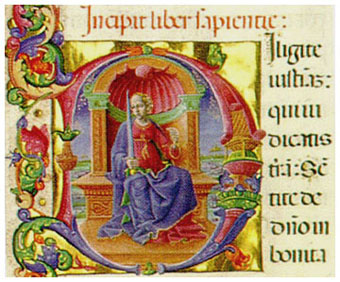 Incipit liber sapientie:
Diligite
iustiāz:
qui iu
dicatis
trā: Sē
tite de
dño in
bonita